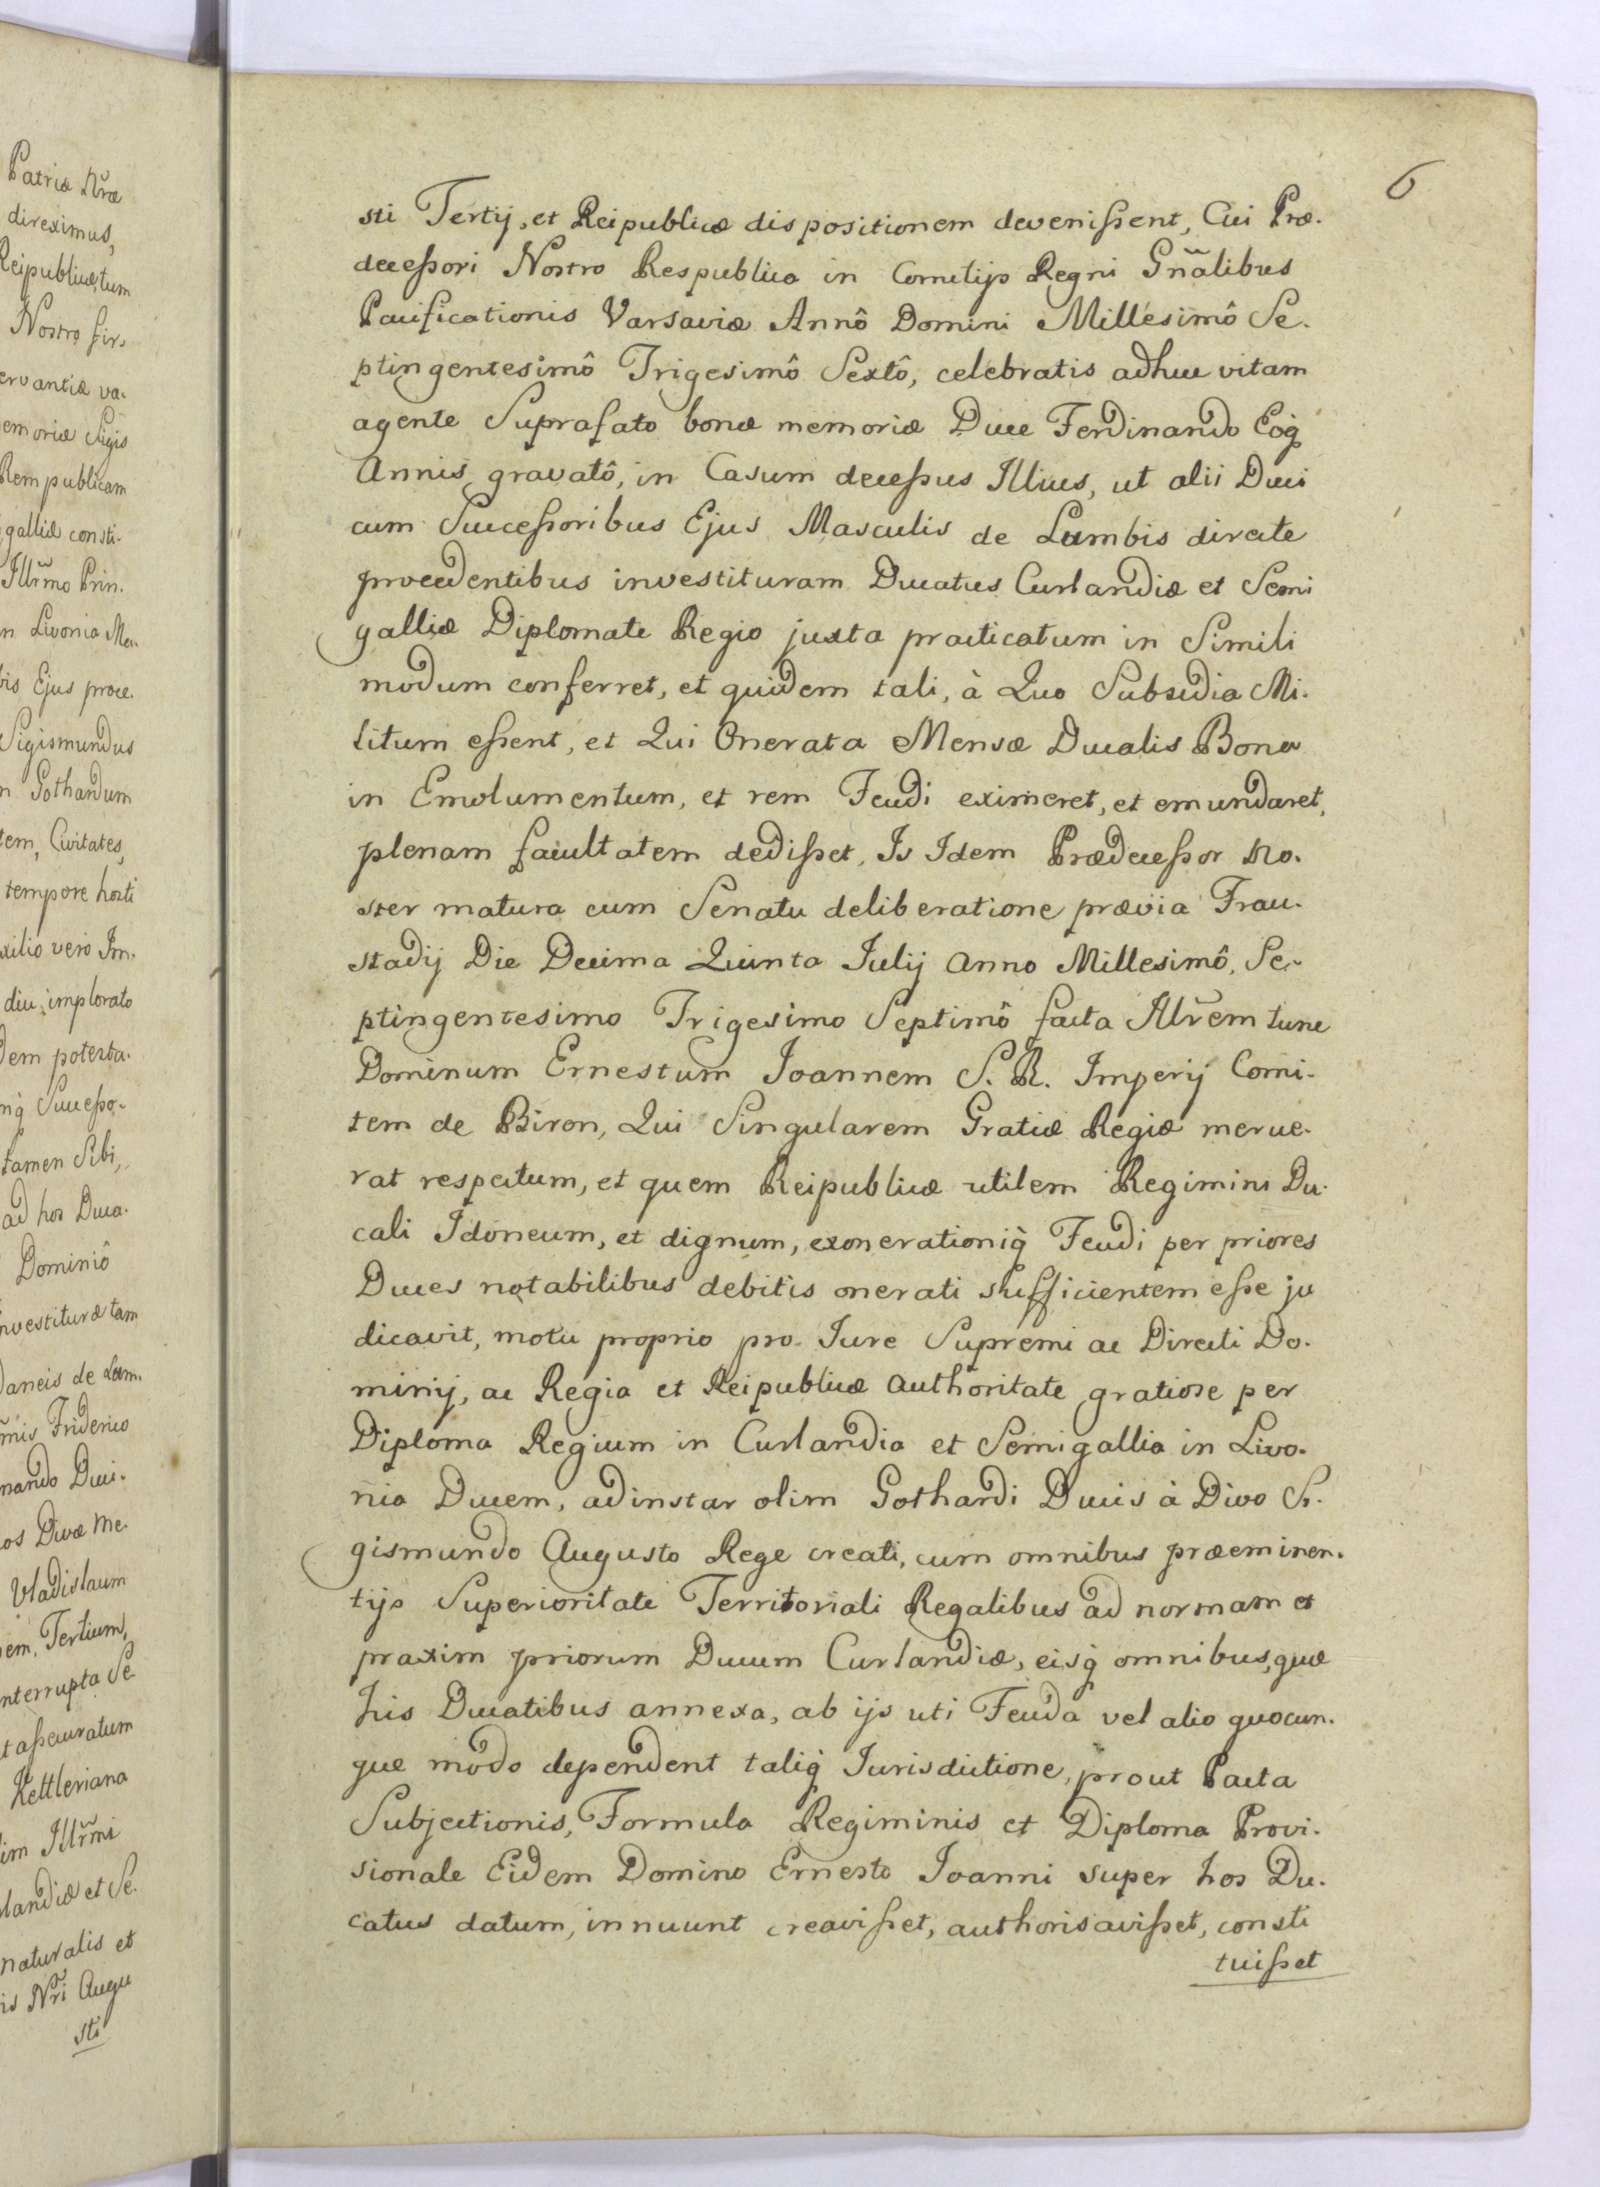 Patriæ Nr̃æ
direximus,
Reipublicæ, tum
Nostro fir-
ervantiæ va-
emoriæ Sigis
Rem publicam
galliæ consti-
Illr̃mo Prin-
n Livonia Me-
bis Ejus proce-
Sigismundus
n Gothardum
tem, Civitates,
tempore hosti
xilio vero Im-
diu, implorato
dem potesta-
nq̀ Successo-
tamen Sibi,
ad hos Duca-
Dominiô
nvestituræ tam
daneis de Lum-
mis Friderico
nando Duci-
os Divæ Me-
Vladislaum
em, Tertium,
nterrupta Se-
t assecuratum
Kettleriana
im Illr̃mi
landiæ et Se-
naturalis et
is Nr̃i Augu
sti
6
sti Tertij, et Reipublicæ dispositionem devenissent, Cui Præ-
decessori Nostro Respublica in Comitijs Regni Gñalibus
Pacificationis Varsaviæ Annô Domini Millesimô Se-
ptingentesimô Trigesimô Sextô, celebratis adhuc vitam
agente Suprafato bonæ memoriæ Duce Ferdinando Eoq̀
Annis gravatô, in Casum decessus Illius, ut alii Duci
cum Successoribus Ejus Masculis de Lumbis directe
procedentibus investituram Ducatus Curlandiæ et Semi
galliæ Diplomate Regio juxta practicatum in Simili
modum conferret, et quidem tali, à Quo Subsidia Mi-
litum essent, et Qui Onerata Mensæ Ducalis Bona
in Emolumentum, et rem Feudi eximeret, et emundaret,
plenam facultatem dedisset, Is Idem Prædecessor No-
ster matura cum Senatu deliberatione prævia Frau-
stadij Die Decima Quinta Julij Anno Millesimô, Se-
ptingentesimo Trigesimo Septimô facta Illr̃em tunc
Dominum Ernestum Joannem S. R. Imperij Comi-
tem de Biron, Qui Singularem Gratiæ Regiæ merue-
rat respectum, et quem Reipublicæ utilem Regimini Du-
cali Idoneum, et dignum, exonerationiq̀ Feudi per priores
Duces notabilibus debitis onerati sufficientem esse ju
dicavit, motu proprio pro Jure Supremi ac Directi Do-
minij, ac Regia et Reipublicæ authoritate gratiose per
Diploma Regium in Curlandia et Semigallia in Livo-
nia Ducem, adinstar olim Gothardi Ducis à Divo Si-
gismundo Augusto Rege creati, cum omnibus præeminen-
tijs Superioritati Territoriali Regalibus ad normam et
praxim priorum Ducum Curlandiæ, eisq̀ omnibus, quæ
his Ducatibus annexa, ab ijs uti Feuda vel alio quocun-
que modo dependent taliq̀ Jurisdictione, prout Pacta
Subjectionis, Formula Regiminis et Diploma Provi-
sionale Eidem Domino Ernesto Joanni super hos Du-
catus datum, innuunt creavisset, authorisavisset, consti
tuisset